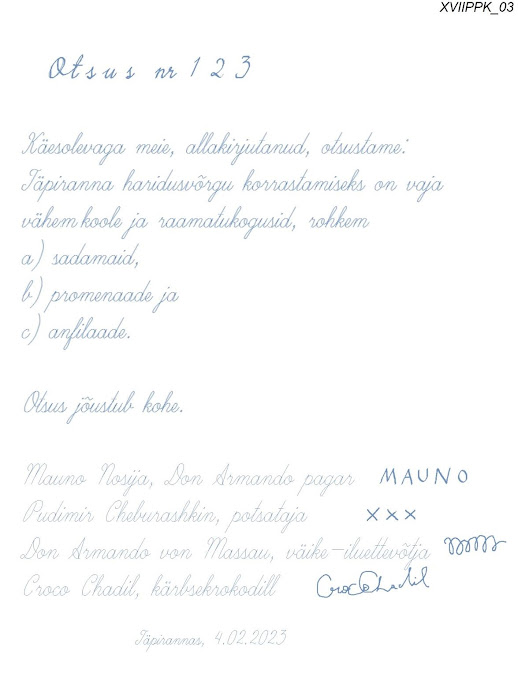 XVIIPPK_03
Otsus nr 123
Käesolevaga meie, allakirjutanud, otsustame:
Täpiranna haridusvõrgu korrastamiseks on vaja
vähem koole ja raamatukogusid, rohkem
a) sadamaid,
b) promenaade ja
c) anfilaade.
Otsus jõustub kohe.
Mauno Nosija, Don Armando pagar MAUNO
Pudimir Cheburashkin, potsataja xxx
Don Armando von Massau, väike-iluettevõtja
Croco Chadil, kärbsekrokodill CrocoChadil
Täpirannas, 4.02.2023